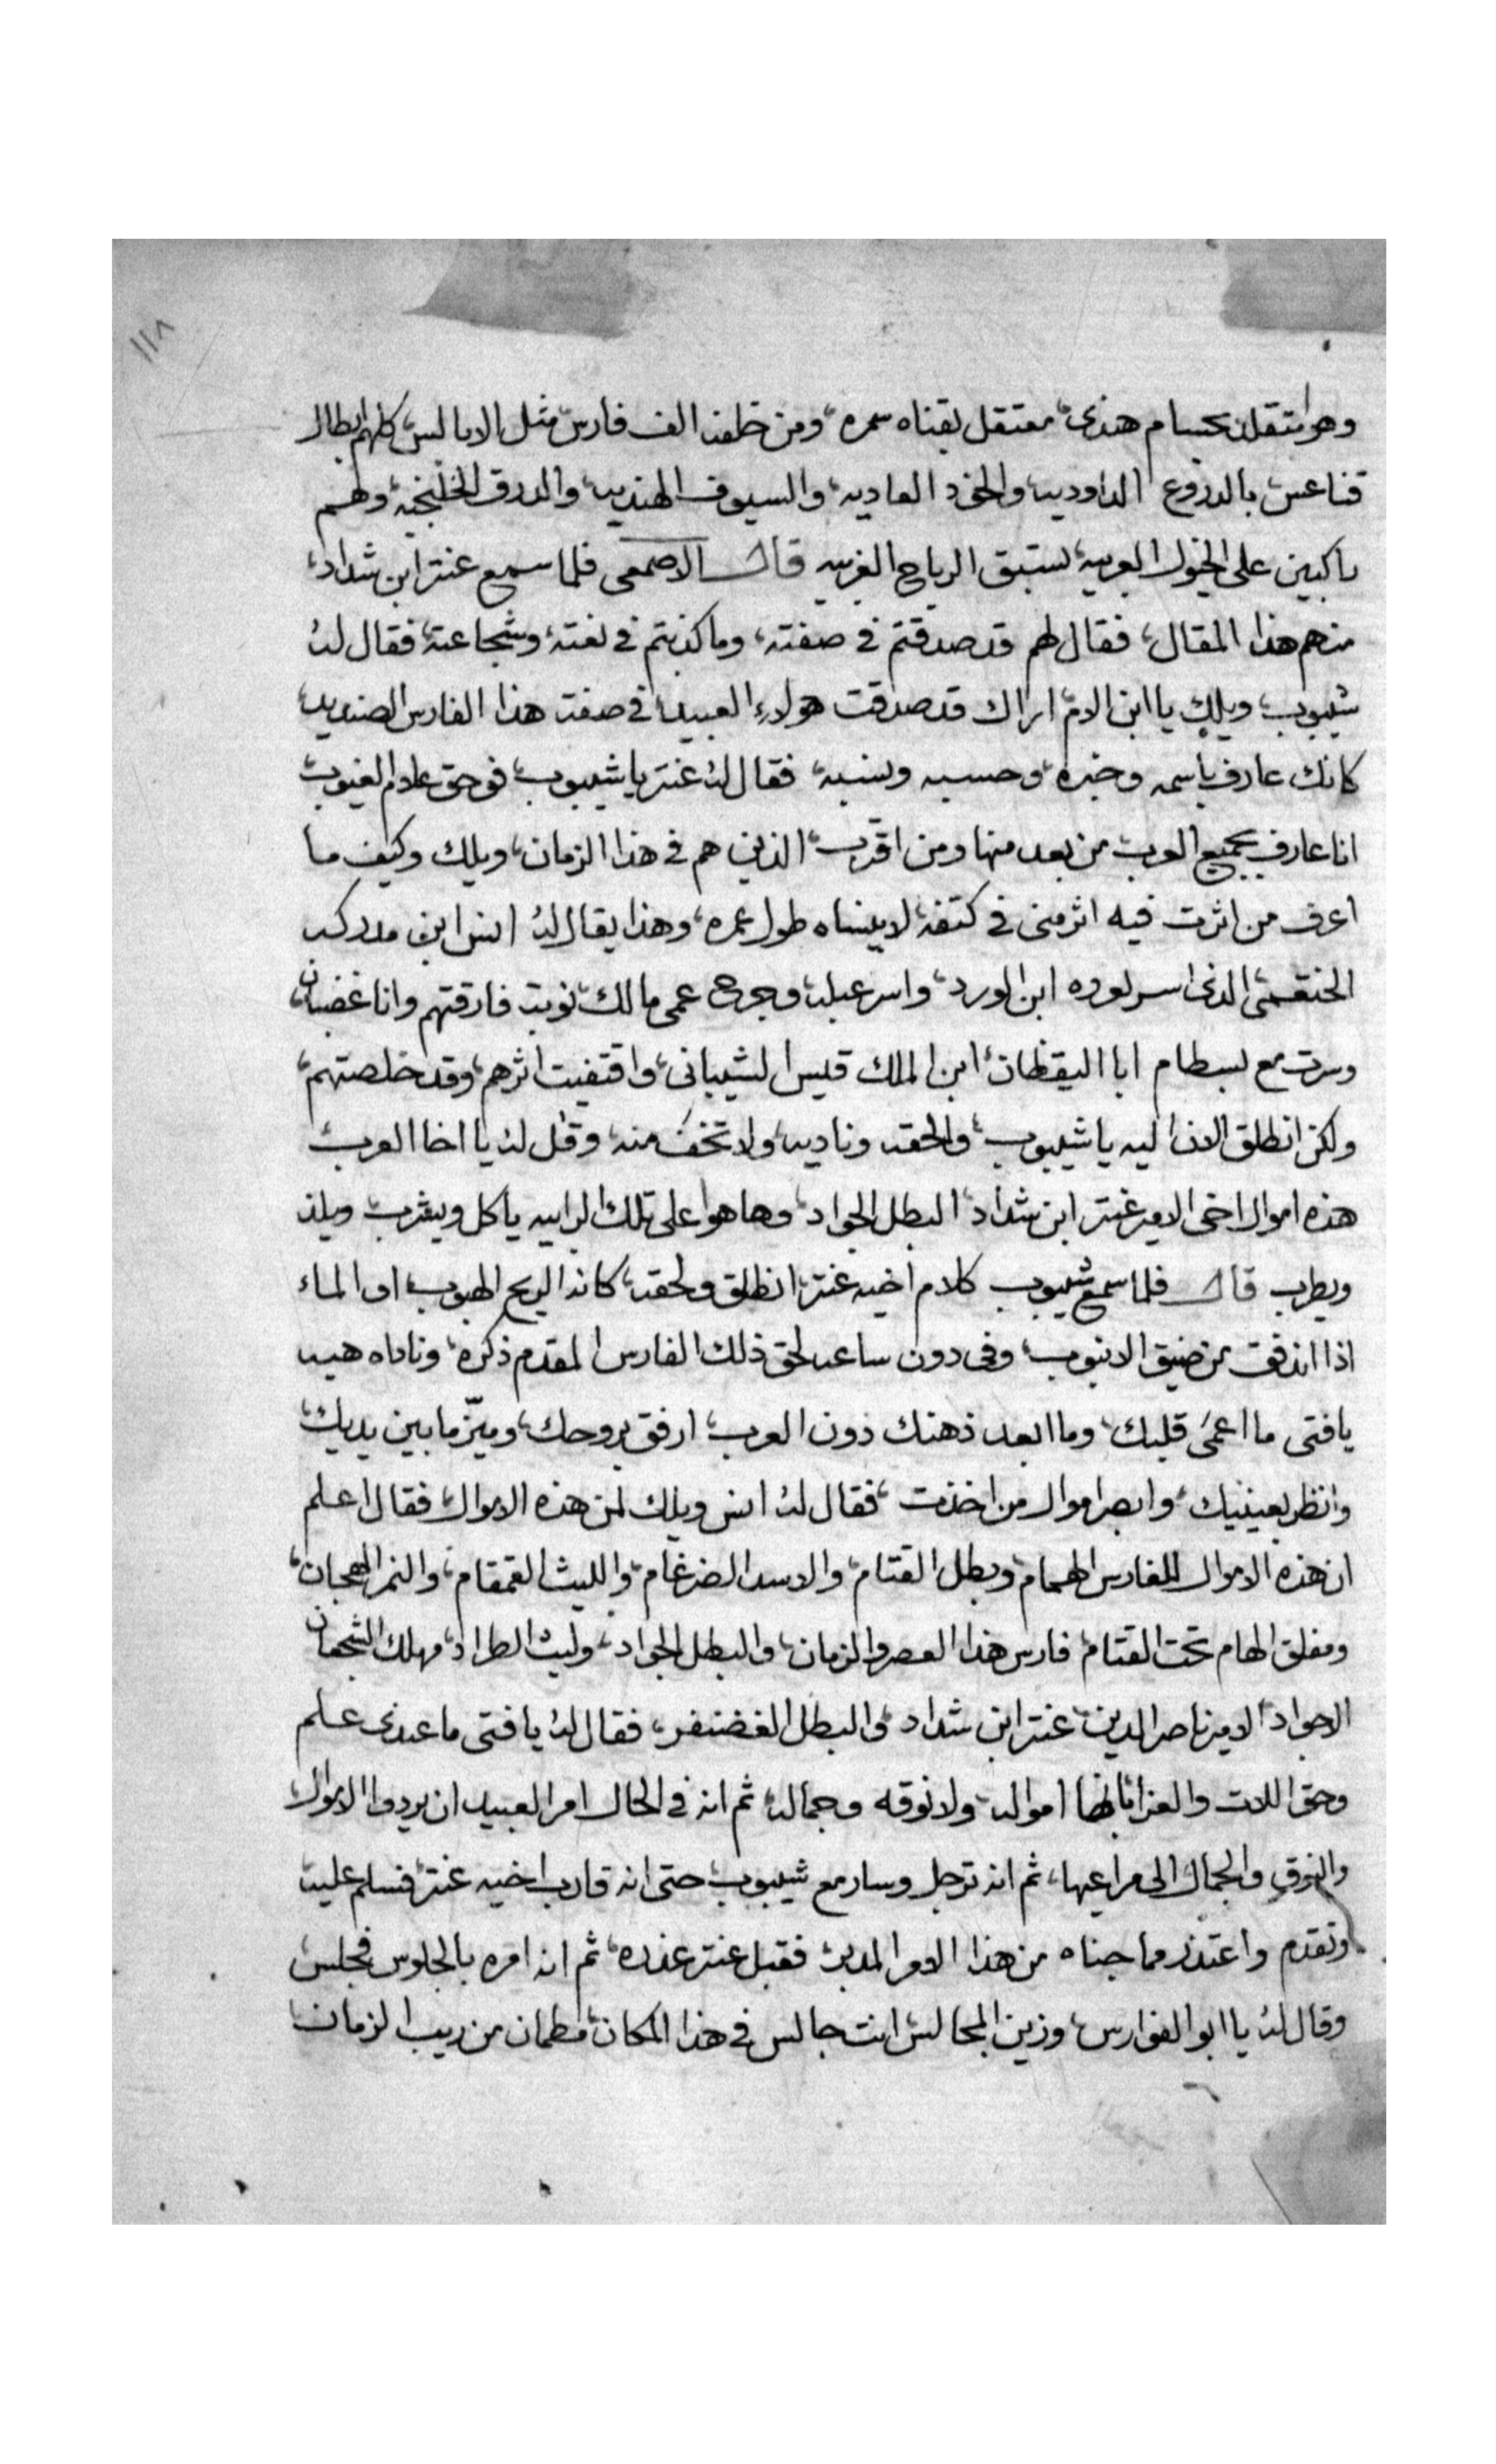 ١١٨
وهو متقلد بحسام هندى، معتقل بقناه سمره، ومن خلفه الف فارس مثل الابالس، كلهم ابطال
قناعس، بالدروع الداوديه، والخود العاديه، والسيوف الهنديه، والدرق الخلنجيه، وهم
راكبين على الخيول العربيه، تستبق الرياح الغربيه قال الاصمعى فلما سمع عنتر ابن شداد،
منهم هذا المقال، فقال لهم قد صدقتم فى صفته، وما كذبتم فى نعته، وشجاعته، فقال له
شيبوب، ويلك يا ابن الام، اراك قد صدقت هولاء العبيد، فى صفت هذا الفارس الصنديد،
كانك عارف باسمه وخبره، وحسبه ونسبه، فقال له عنتر يا شيبوب، فوحق علام الغيوب،
انا عارف بجميع العرب من بعد منها ومن اقرب، الذين هم فى هذا الزمان، ويلك وكيف ما
اعرف من اثرت فيه اثر منى فى كتفه، لا ينساه طول عمره، وهذا يقال له انس ابن مدركه
الخثعمى، الذى اسر لعروه ابن الورد، واسر عبله، وجرح عمى مالك، نوبت فارقتهم وانا غضبان،
وسرت مع بسطام ابا اليقظان، ابن الملك قيس الشيبانى، واقتفيت اثرهم، وقد خلصتهم،
ولكن انطلق الان اليه يا شيبوب، والحقه وناديه، ولا تخف منه، وقل له يا اخا العرب
هذه اموال اخى الامير عنتر ابن شداد، البطل الجواد، وها هوا على تلك الرابيه ياكل ويشرب ويلذ
ويطرب قال فلما سمع شيبوب كلام اخيه عنتر، انطلق ولحقه، كانه الريح الهبوب، او الماء
اذا اندفق من ضيق الانبوب، وفى دون ساعه لحق ذلك الفارس المقدم ذكره، وناداه هيه
يا فتى ما اعمى قلبك، وما ابعد ذهنك دون العرب، ارفق بروحك، وميّز ما بين يديك،
وانظر بعينيك، وابصر اموال من اخذت، فقال له انس ويلك لمن هذه الاموال، فقال اعلم
ان هذه الاموال للفارس الهمام، وبطل القتام، والاسد الضرغام، والليث القمقام، والنمر الهجان،
ومفلق الهام تحت القتام، فارس هذا العصر والزمان، والبطل الجواد، وليث الطراد، مهلك الشجعان
الاجواد، الامير ناصر الدين، عنتر ابن شداد، والبطل الغضنفر، فقال له يا فتى ما عندى علم
وحق اللات والعزا بانها امواله، ولا نوقه وجماله، ثم انه فى الحال امر العبيد ان يردوا الاموال،
والنوق والجمال الى مراعيها، ثم انه ترجل وسار مع شيبوب، حتى انه قارب اخيه عنتر، فسلم عليه
وتقدم واعتذر مما جناه من هذا الامر المدبر، فقبل عنتر عذره، ثم انه امره بالجلوس فجلس،
وقال له يا ابو الفوارس، وزين المجالس، انت جالس فى هذا المكان، مطمان من ريب الزمان،